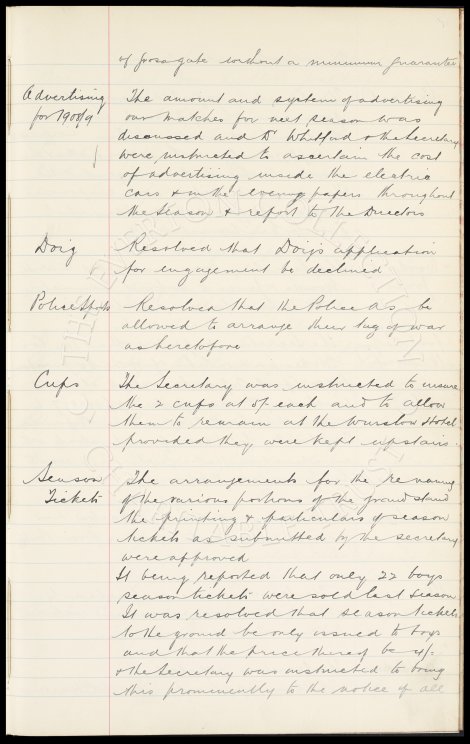 of gross gate without a minimum guarantee
Advertising for 1908/9
The amount and system of advertising
our matches for next season was
discussed and Dr Whitford & the Secretary
were instructed to ascertain the cost
of advertising inside the electric
cars & in the evening papers throughout
the Season & report to the Directors
Doig
Resolved that Doig's application
for engagement be declined
Police Sports
Resolved that the Police AS. be
allowed to arrange their tug of war
as heretofore
Cups
The Secretary was instructed to insure
the 2 cups at each and to allow
them to remain at the Winslow Hotel
provided they were kept upstairs.
Season Tickets
The arrangements for the
of the various portions of the ground stand
the printing & particulars of season
tickets as submitted by the secretary
were approved
It being reported that only 22 boys
season tickets were sold last season
It was resolved that season tickets
to the ground be only issued to boys
and that the price thereof be
& the Secretary was instructed to bring
this prominently to the notice of all
THE EVERTON COLLECTION